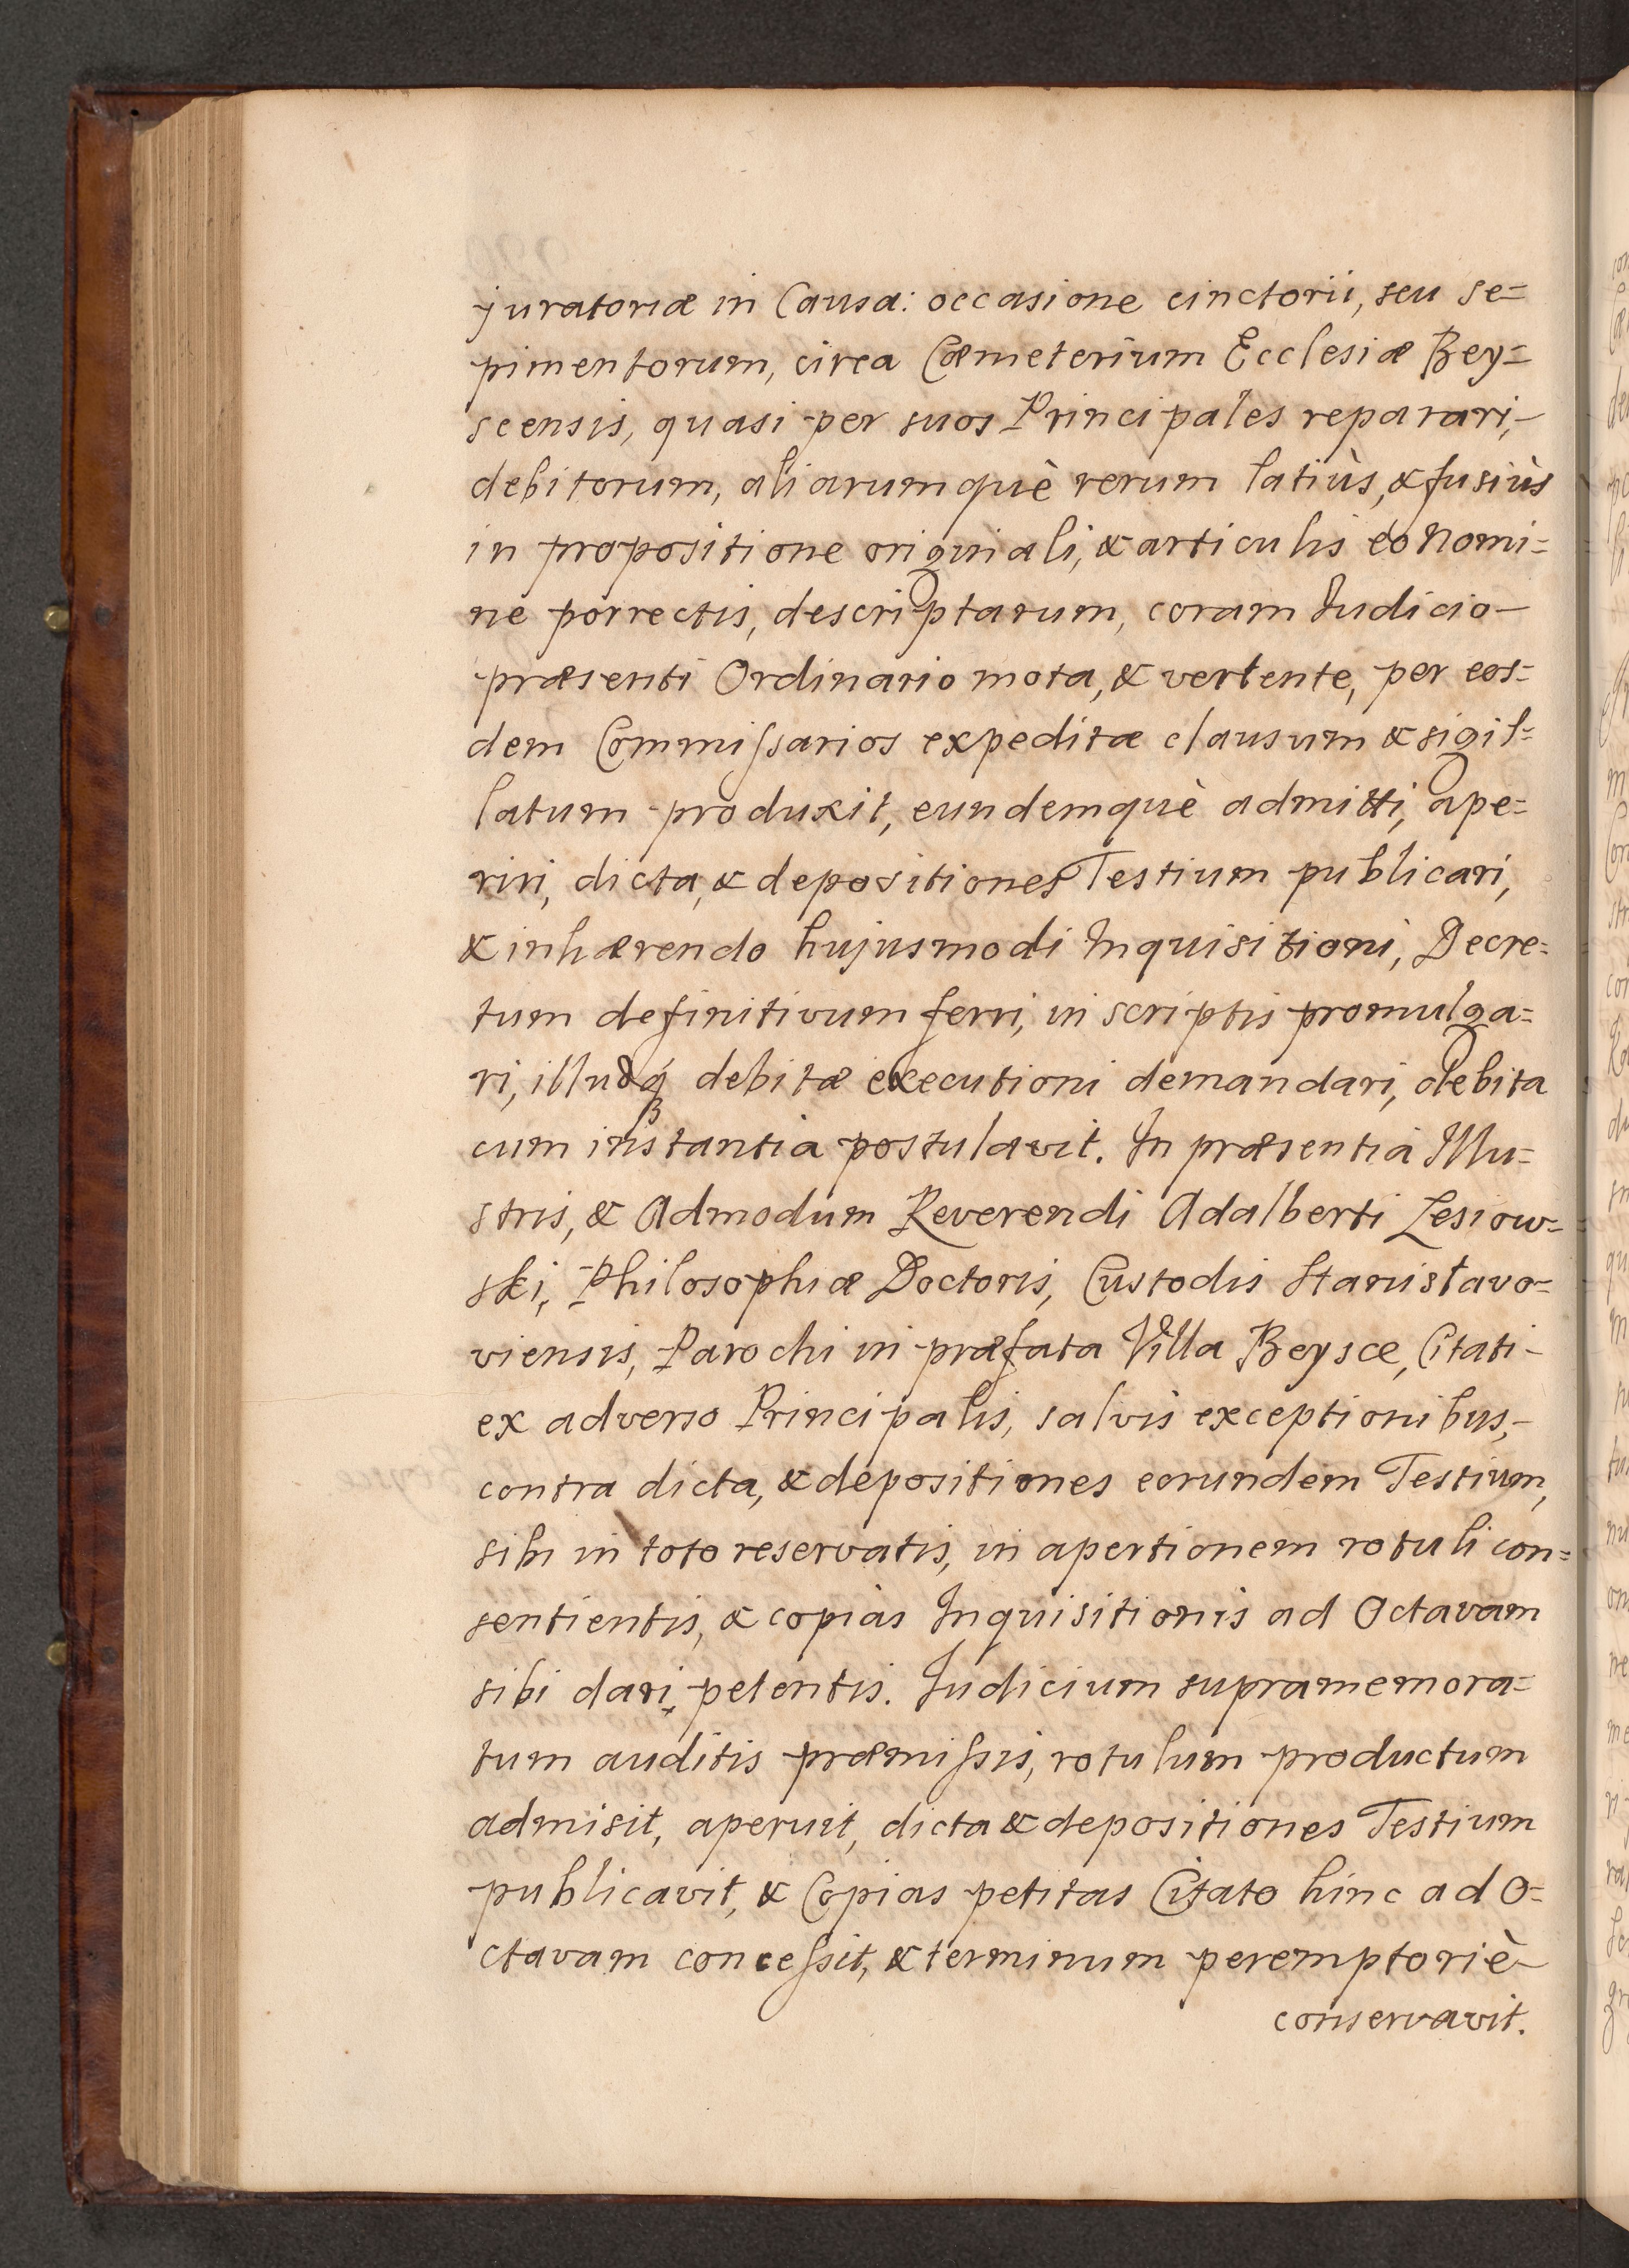 juratoriæ in Causa: occasione cinctorii, seu se=
pimentorum, circa Cæmeterium Ecclesiæ Bey=
scensis, quasi per suos Principales reparari,
debitorum, aliarumquè rerum latiùs, & fusiùs
in propositione originali, & articulis eo Nomi=
ne porrectis, descriptarum, coram Iudicio
præsenti Ordinario mota, & vertente, per eos=
dem Commissarios expeditæ clausum & sigil=
latum produxit, eundemquè admitti, ape=
riri, dicta, & depositiones Testium publicari,
& inhærendo hujusmodi Inquisitioni, Decre=
tum definitivum ferri, in scriptis promulga=
ri, illudq́ debitæ executioni demandari, debita
cum instantia postulavit. In præsentia Illu=
stris, & Admodum Reverendi Adalberti Lesiow=
ski, Philosophiæ Doctoris, Custodis Stanislavo=
viensis, Parochi in præfata Villa Beysce, Citati
ex adverso Principalis, salvis exceptionibus,
contra dicta, & depositiones eorundem Testium,
sibi in toto reservatis, in apertionem rotuli con=
sentientis, & copias Inquisitionis ad Octavam
sibi dari, petentis. Iudicium supramemora=
tum auditis præmissis, rotulum productum
admisit, aperuit, dicta & depositiones Testium
publicavit, & Copias petitas Citato hinc ad O=
ctavam concessit, & terminum peremptoriè
conservavit.